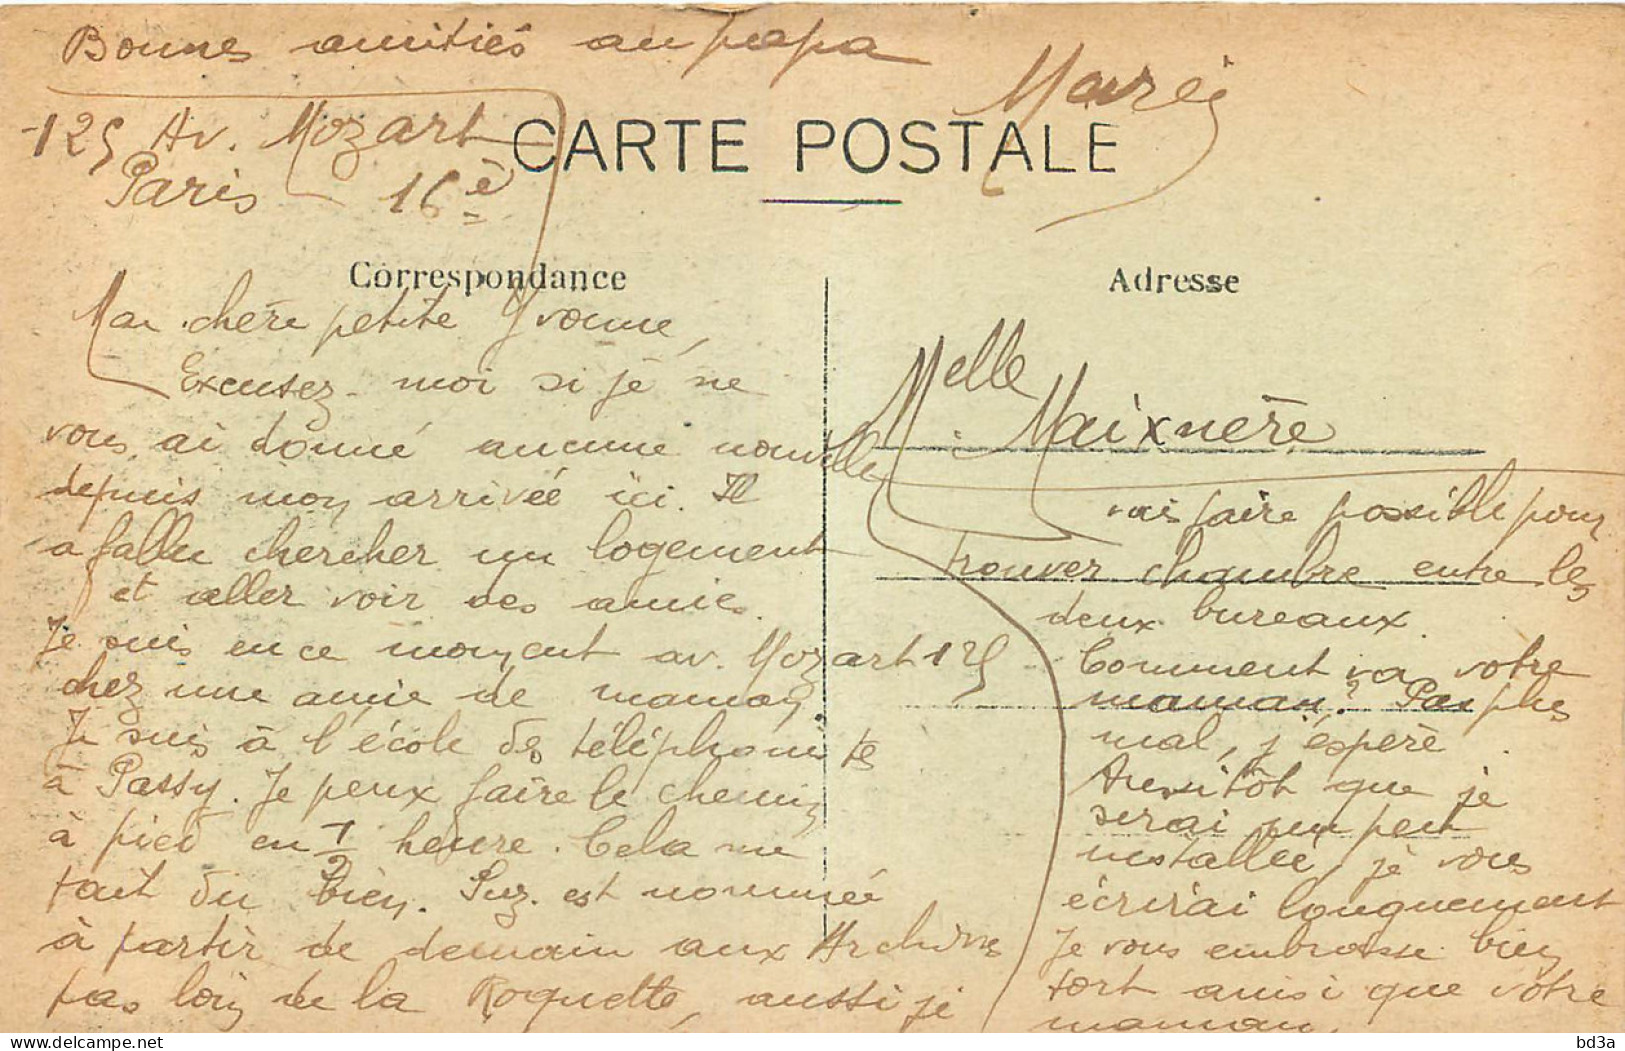 Bonnes amitiés au papa
Marie
125 Av. Mozart
Paris 16è
CARTE POSTALE
Correspondance
Ma chère petite Yvonne,
Excusez-moi si je ne
vous ai donné aucune nouvelle
depuis mon arrivée ici. Il
a fallu chercher un logement
et aller voir des amies.
Je suis en ce moment av. Mozart 125
chez une amie de maman.
Je suis à l'école des téléphonistes
à Passy. Je peux faire le chemin
à pied en 1/2 heure. Cela me
fait du bien. Suz. est nommée
à partir de demain aux Archives
pas loin de la Roquette, aussi je
Adresse
Melle Maixnère
vais faire possible pour
trouver chambre entre les
deux bureaux.
Comment va votre
maman? Pas plus
mal, j'espère.
Aussitôt que je
serai un peu
installée, je vous
écrirai longuement
Je vous embrasse bien
fort ainsi que votre
maman.
delcampe.net
bd3a